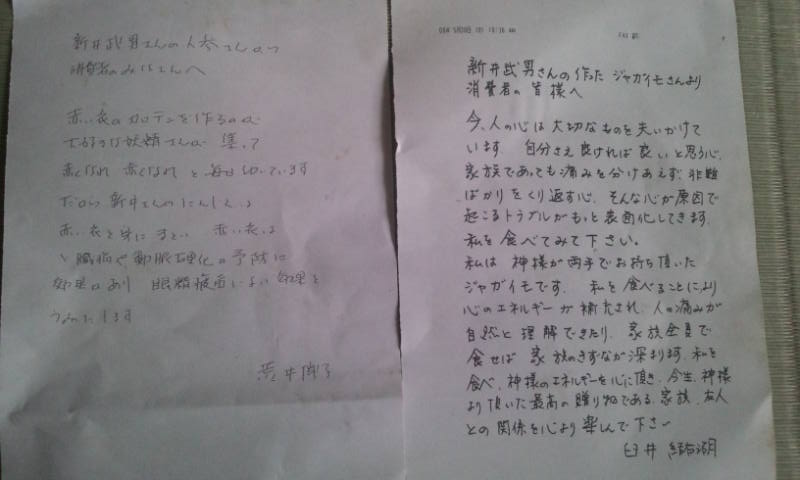 新井武男さんの人参さんより
消費者のみなさんへ
赤い衣のカロテンを作るのは
妖精さんが 集って
赤くなれ 赤くなれ と毎日 います
だから 新井さんのにんじんは
赤い衣を身にまとい 赤い衣は
心臓病や動脈硬化の予防に
効果があり 眼精疲労によい効果を
うみだします
新井武男さんの作った ジャガイモさんより
消費者の 皆様へ
今、人の心は大切なものを失いかけて
います 自分さえ良ければ良いと思う心、
家族であっても痛みを分けあえず 非難
ばかりをくり返す心、そんな心が原因で
起こるトラブルがもっと表面化してきます。
私を食べてみて下さい。
私は 神様が両手でお持ち頂いた
ジャガイモです。 私を食べることにより
心のエネルギーが補充され、人の痛みが
自然と 理解できたり、家族全員で
食せば 家族のきずなが深まります。私を
食べ、神様のエネルギーを心に頂き、今生、神様
より頂いた最高の贈り物である、家族、友人
との関係を心より楽しんで下さい
臼井 結湖